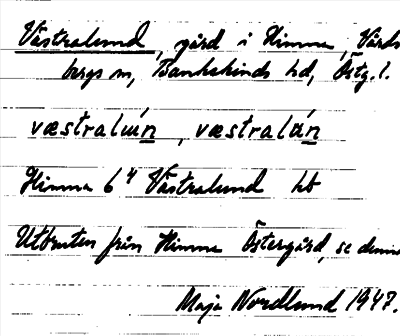 Västralund, gård i Himna, Vårds
bergs sn, Bankekinds hd, Östg. l.
væstralún, væstralún
Himna 6⁴ Västralund hb
Utbruten från Himna Östergård, se denna
Maja Nordlund 1947.